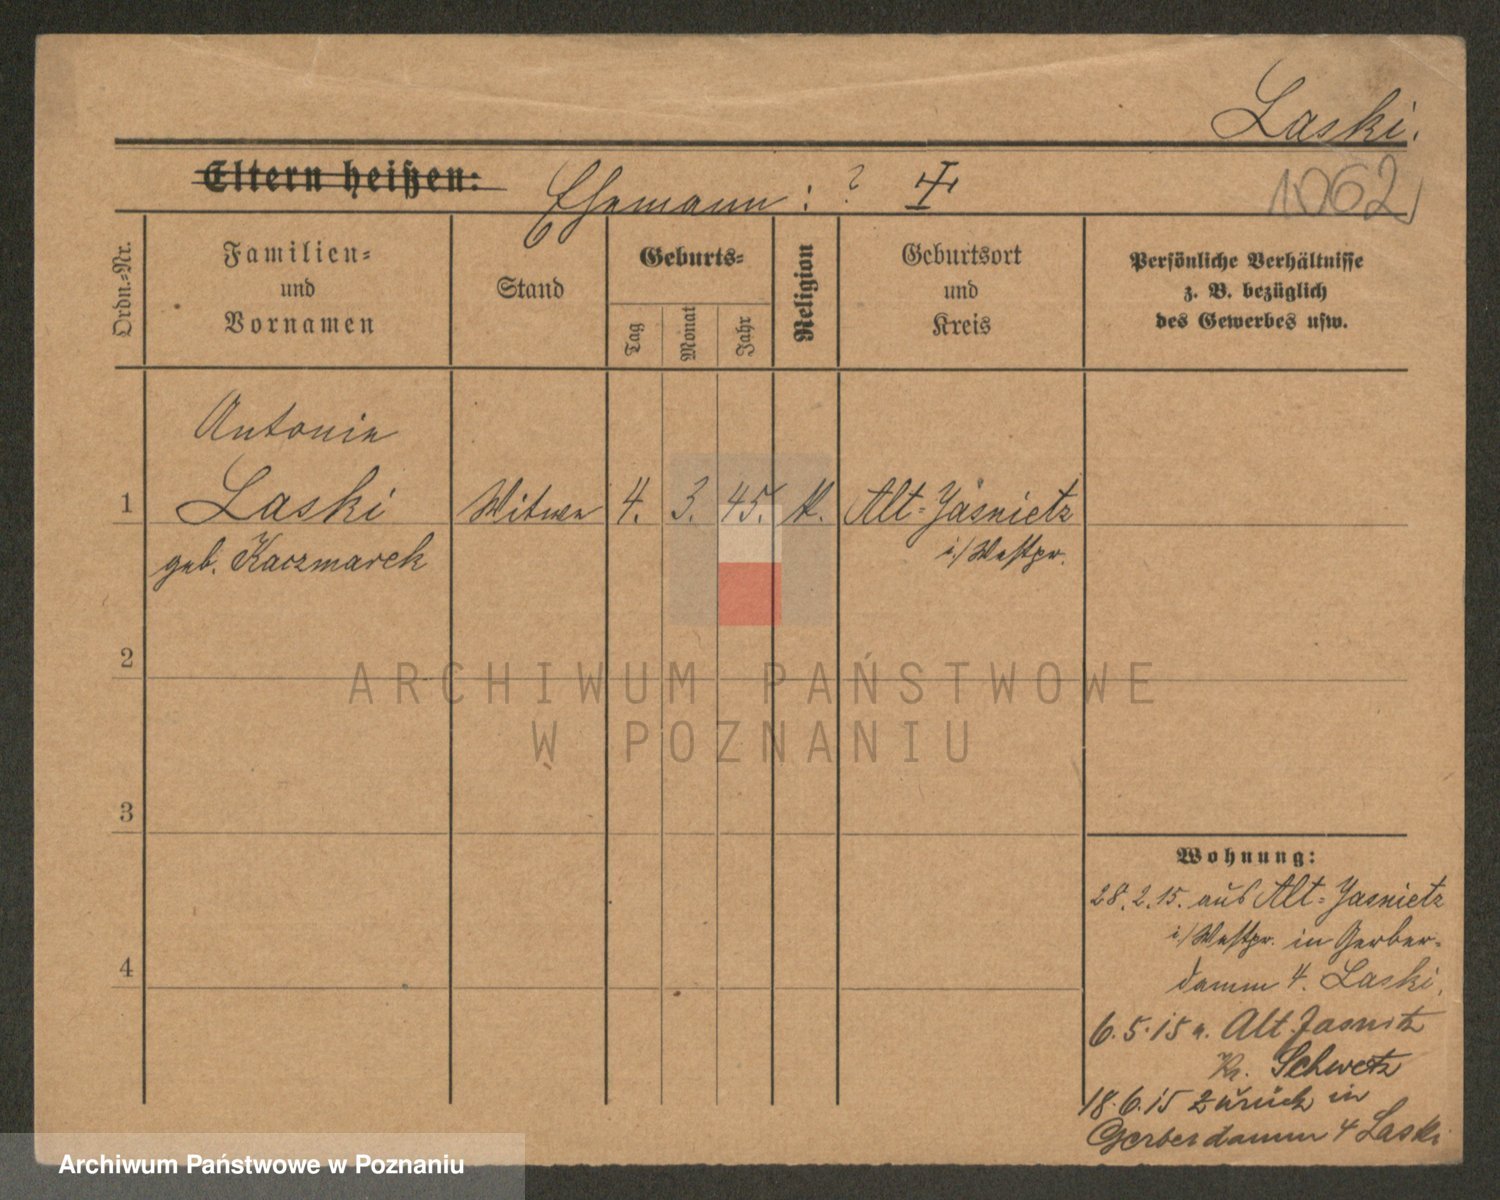 Laski.
1062
Eltern heißen: Ehemann: ? 
Ordn.-Nr.
Familien-
und
Vornamen
Stand
Geburts-
Tag
Monat
Jahr
Religion
Geburtsort
und
Kreis
Persönliche Verhältnisse
z. B. bezüglich
des Gewerbes usw.
Antonie
1 Laski Witwe 4. 3. 45. k. Alt-Jasnietz
geb. Kaczmarek i/Westpr.
2
3
4
Wohnung:
28.2.15. aus Alt-Jasnietz
i/Westpr. in Gerber-
damm 4. Laski.
6.5.15 n. Alt Jasnitz
Kr. Schwetz
18.6.15 zurück in
Gerberdamm 4 Laski
ARCHIWUM PAŃSTWOWE
W POZNANIU
Archiwum Państwowe w Poznaniu